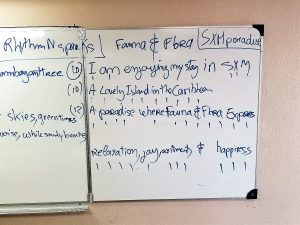 Rhythm N sparks] Fauna & Flora [SXMparadise
tree (10) I am enjoying my stay in SXM
(10) A Lovely Island in the Caribbean
(12) A paradise where Fauna & Flora Exposes
skies, green trees
while sandy beaches Relaxation, joy, & happiness